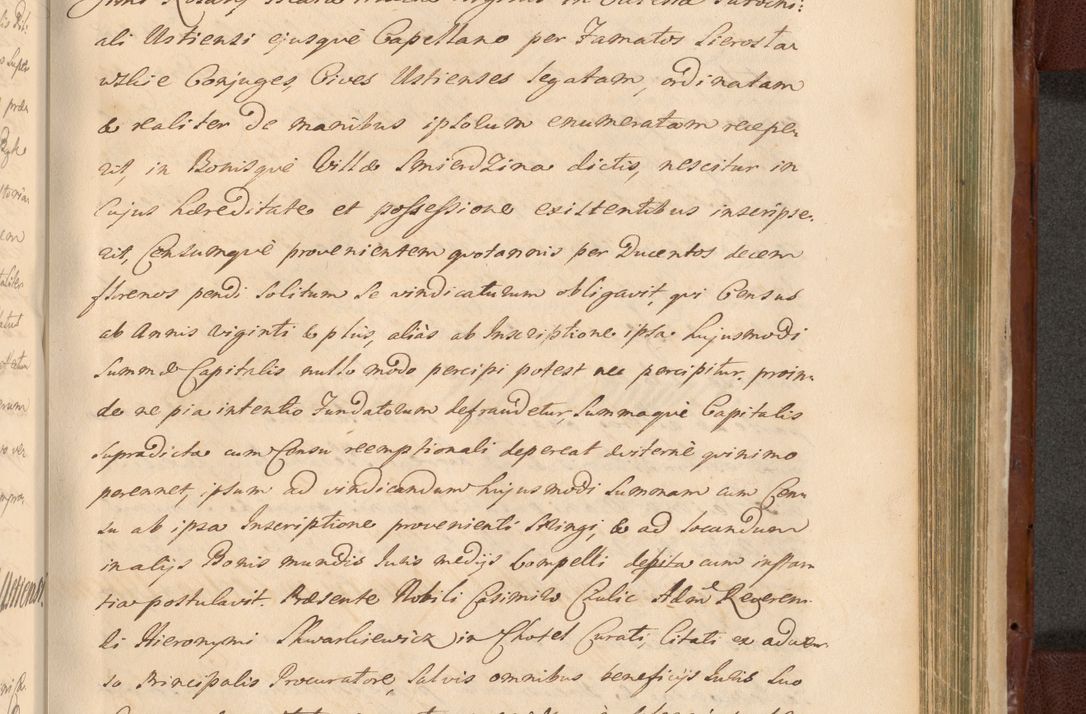 ali Ustiensi ejusquè Capellano per Famatos Sierosta
wskie Conjuges, Cives Ustienses legatam, ordinatam
& realiter de manibus ipsorum enumeratam recepe-
rit, in Bonisquè Villæ Smierdzina dictis, nescitur in
Cujus hæreditate et possessione existentibus inscripse-
rit, Censumquè provenientem quotannis per Ducentos decem
florenos pendi solitum se vindicaturum obligavit, qui Census
ab Annis viginti & plus, aliàs ab Inscriptione ipsa hujusmodi
Summæ Capitalis nullo modo percipi potest nec percipitur. proin-
de ne pia intentio Fundatorum defraudetur, Summaquè Capitalis
supradicta cum Censu reemptionali depereat æviternè quinimo
perennet, ipsum ad vindicandum hujusmodi Summam cum Cen-
su ab ipsa Inscriptione provenienti stringi, & ad locandum
in alijs Bonis mundis Iuris medijs Compelli debita cum instan-
tia postulavit. Præsente Nobili Casimiro Czulic Admd Reveren-
di Hieronymi Skwarkiewicz in Chotel Curati, Citati ex adver-
so Principalis Procuratore, salvis omnibus beneficijs Iuris suo